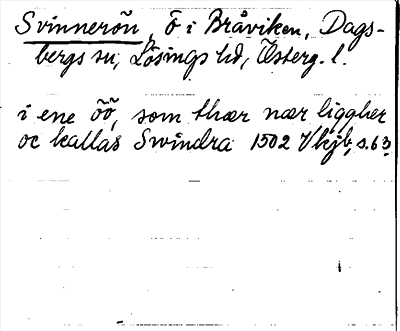 Svinnerön, ö i Bråviken, Dags-
bergs sn, Lösings hd, Österg. l.
i ene öö, som thær nær liggher
oc kallas Swindra 1502 Vkjb, s. 63.